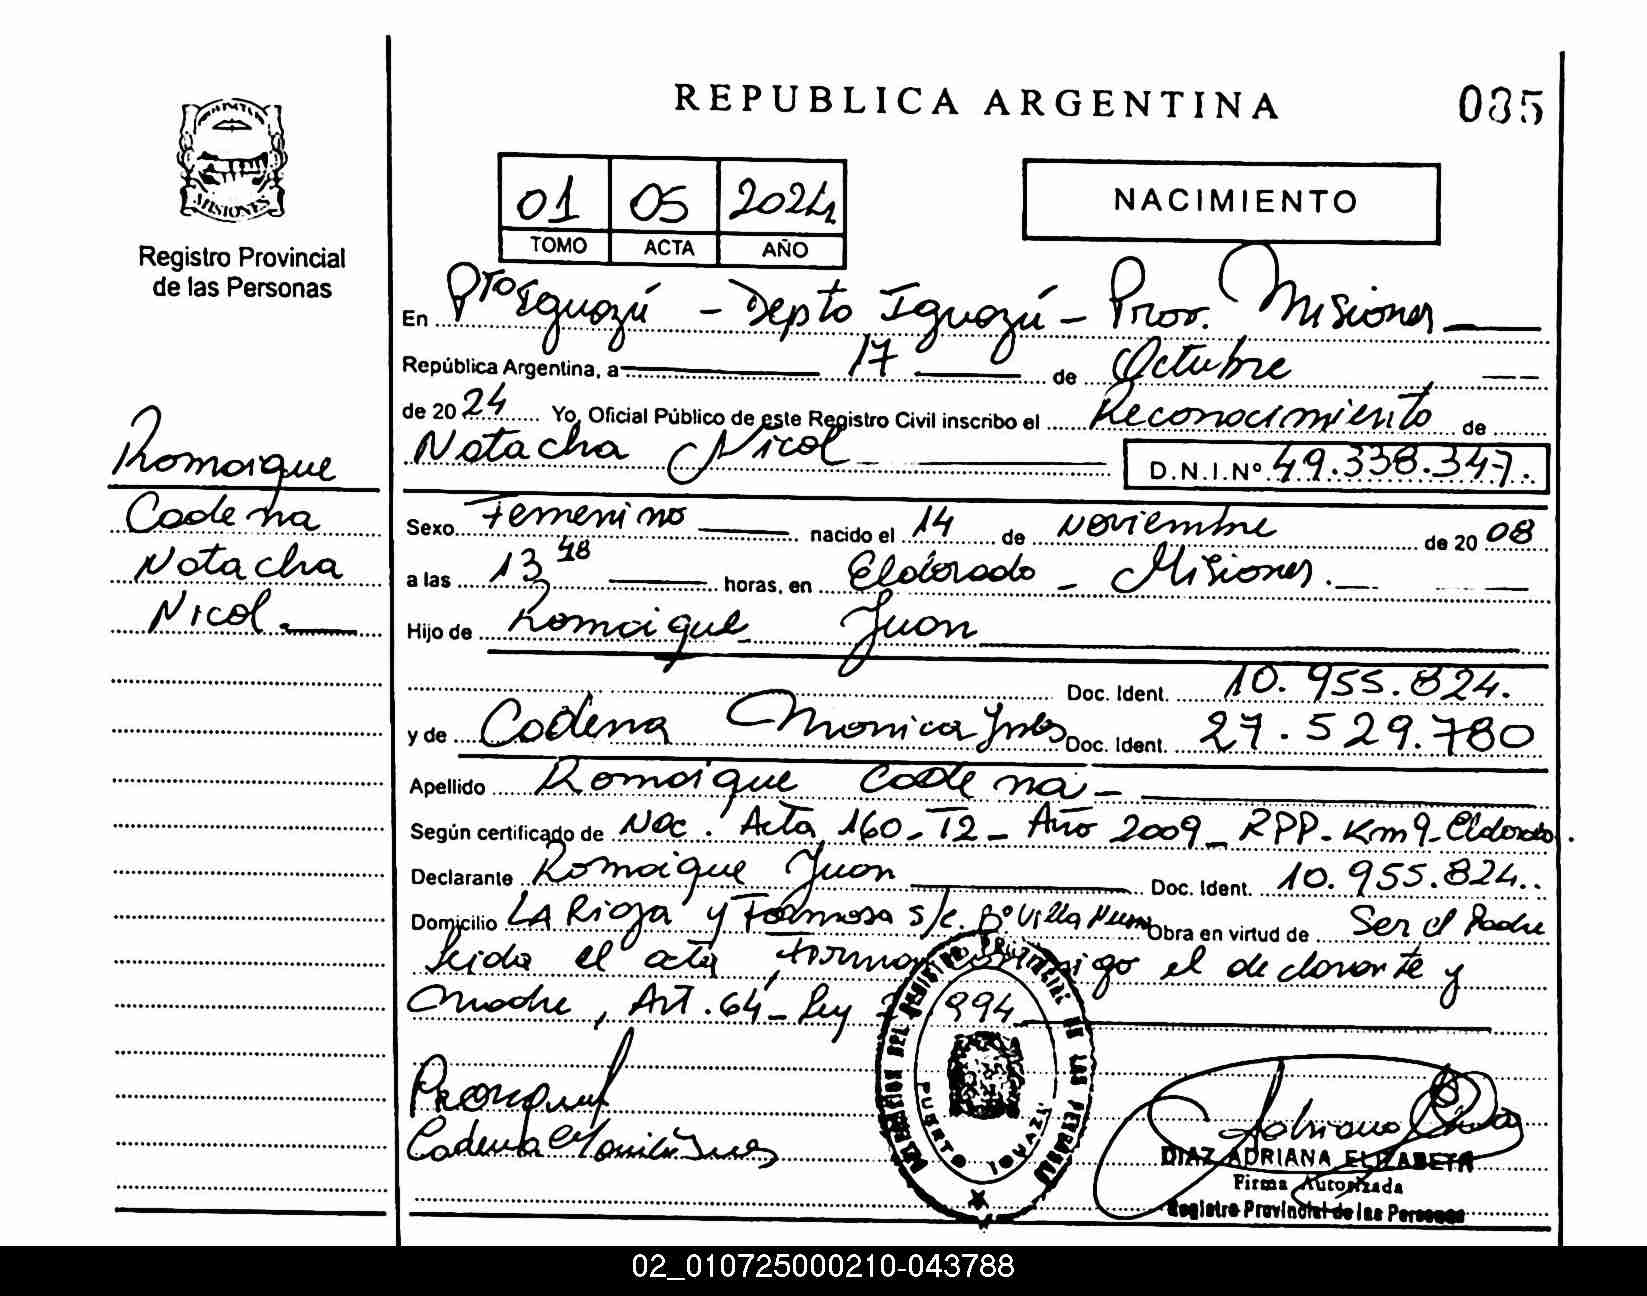 REPUBLICA ARGENTINA
035
MISIONES
Registro Provincial
de las Personas
01 05 2024
TOMO ACTA AÑO
NACIMIENTO
En Pto Iguazú - Depto Iguazú - Prov. Misiones
República Argentina, a 17 de Octubre
de 2024 Yo, Oficial Público de este Registro Civil inscribo el Reconocimiento de
Natacha Nicol D.N.I.Nº 49.338.347.
Romaique
Cadena
Natacha
Nicol.
Sexo Femenino nacido el 14 de noviembre de 2008
a las 13 48 horas, en Eldorado - Misiones.
Hijo de Romaique Juan
Doc. Ident. 10.955.824.
y de Cadena Monica Ines Doc. Ident. 27.529.780
Apellido Romaique Cadena -
Según certificado de Nac. Acta 160 - T2 - Año 2009 - RPP - Km 9 - Eldorado.
Declarante Romaique Juan Doc. Ident. 10.955.824..
Domicilio LA Rioja y Formosa s/c. Bº Villa Obra en virtud de Ser el Padre
Leida el acta, firman conmigo el declarante y
Madre, Art. 64 - Ley 994
Cadena Monica Ines
DELEGACION DEL REGISTRO PROVINCIAL DE LAS PERSONAS
PUERTO IGUAZU
DIAZ ADRIANA ELIZABETH
Firma Autorizada
Registro Provincial de las Personas
02_010725000210-043788